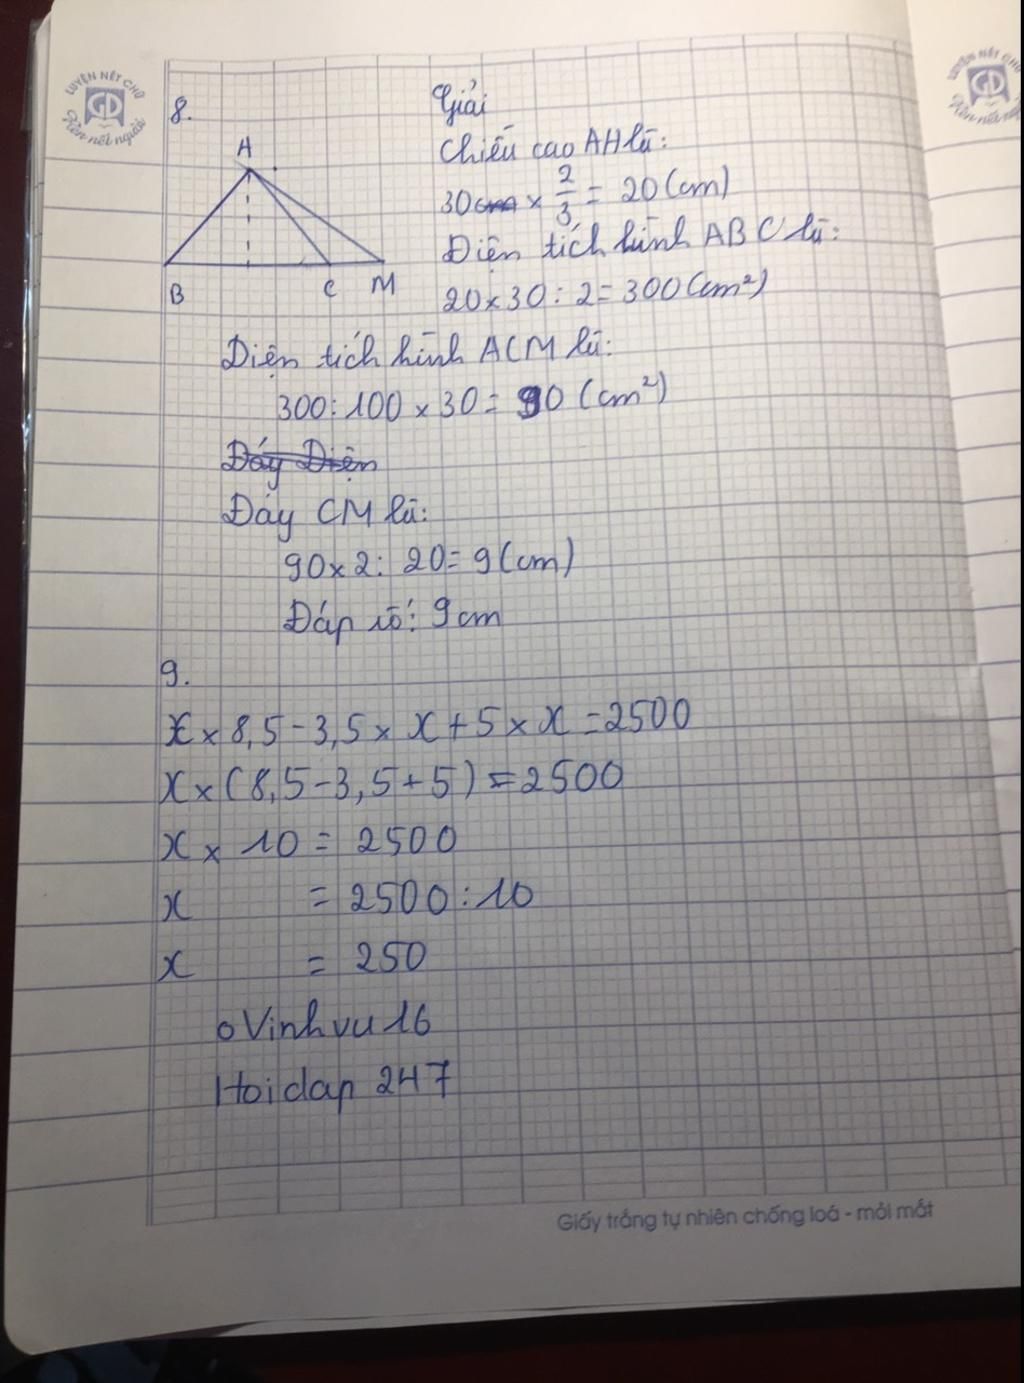 LUYỆN NÉT CHỮ
GD
Rèn nết người
LUYỆN NÉT CHỮ
GD
Rèn nết người
8.
Giải
A
B
C
M
Chiều cao AH là:
30cm × 2/3 = 20 (cm)
Diện tích hình ABC là:
20 × 30 : 2 = 300 (cm²)
Diện tích hình ACM là:
300 : 100 × 30 = 90 (cm²)
Đáy Diện
Đáy CM là:
90 × 2 : 20 = 9 (cm)
Đáp số: 9 cm
9.
x × 8,5 - 3,5 × x + 5 × x = 2500
x × (8,5 - 3,5 + 5) = 2500
x × 10 = 2500
x = 2500 : 10
x = 250
o Vinhvu16
Hoidap 247
Giấy trắng tự nhiên chống loá - mỏi mắt